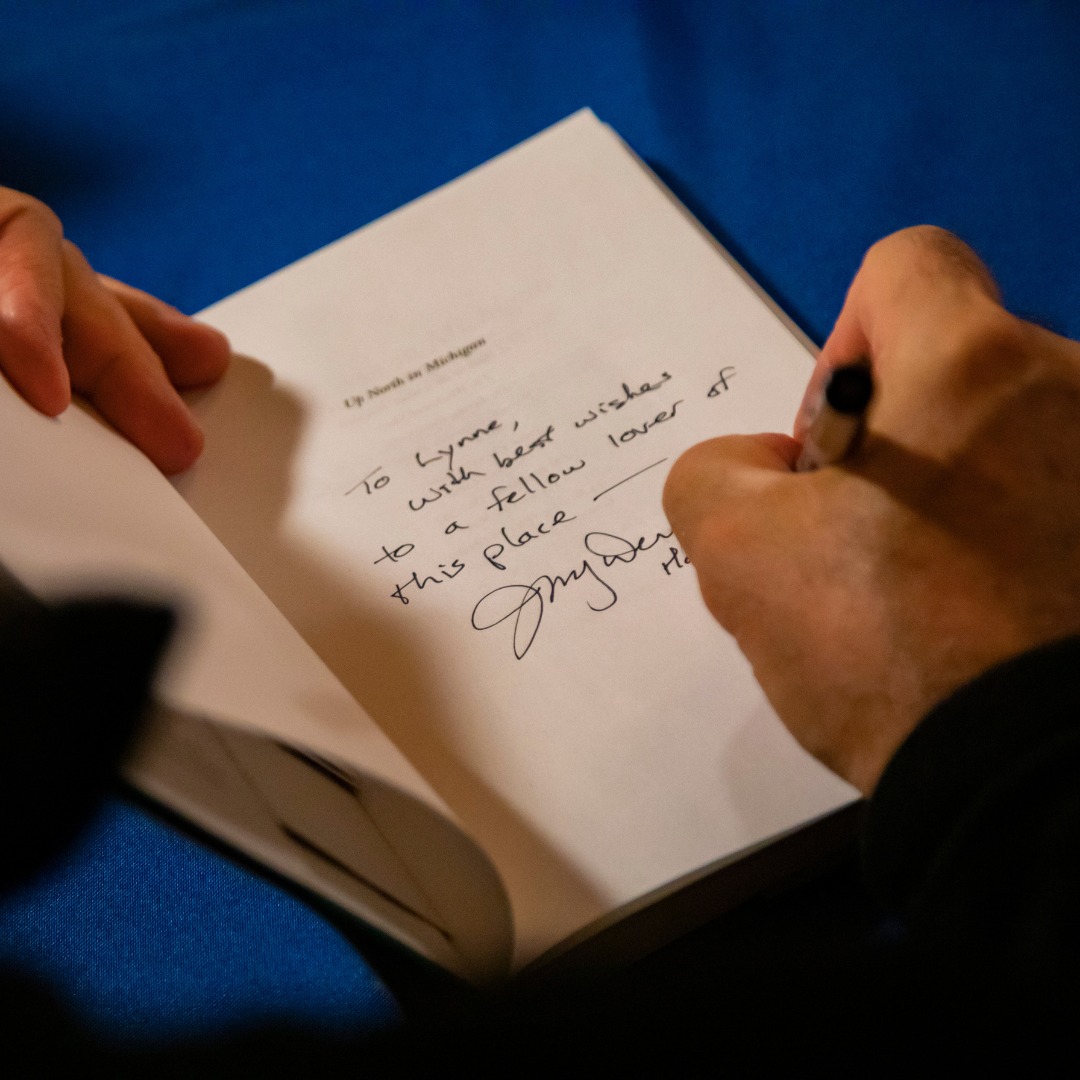 Up North in Michigan
To Lynne,
with best wishes
to a fellow lover of
this place —